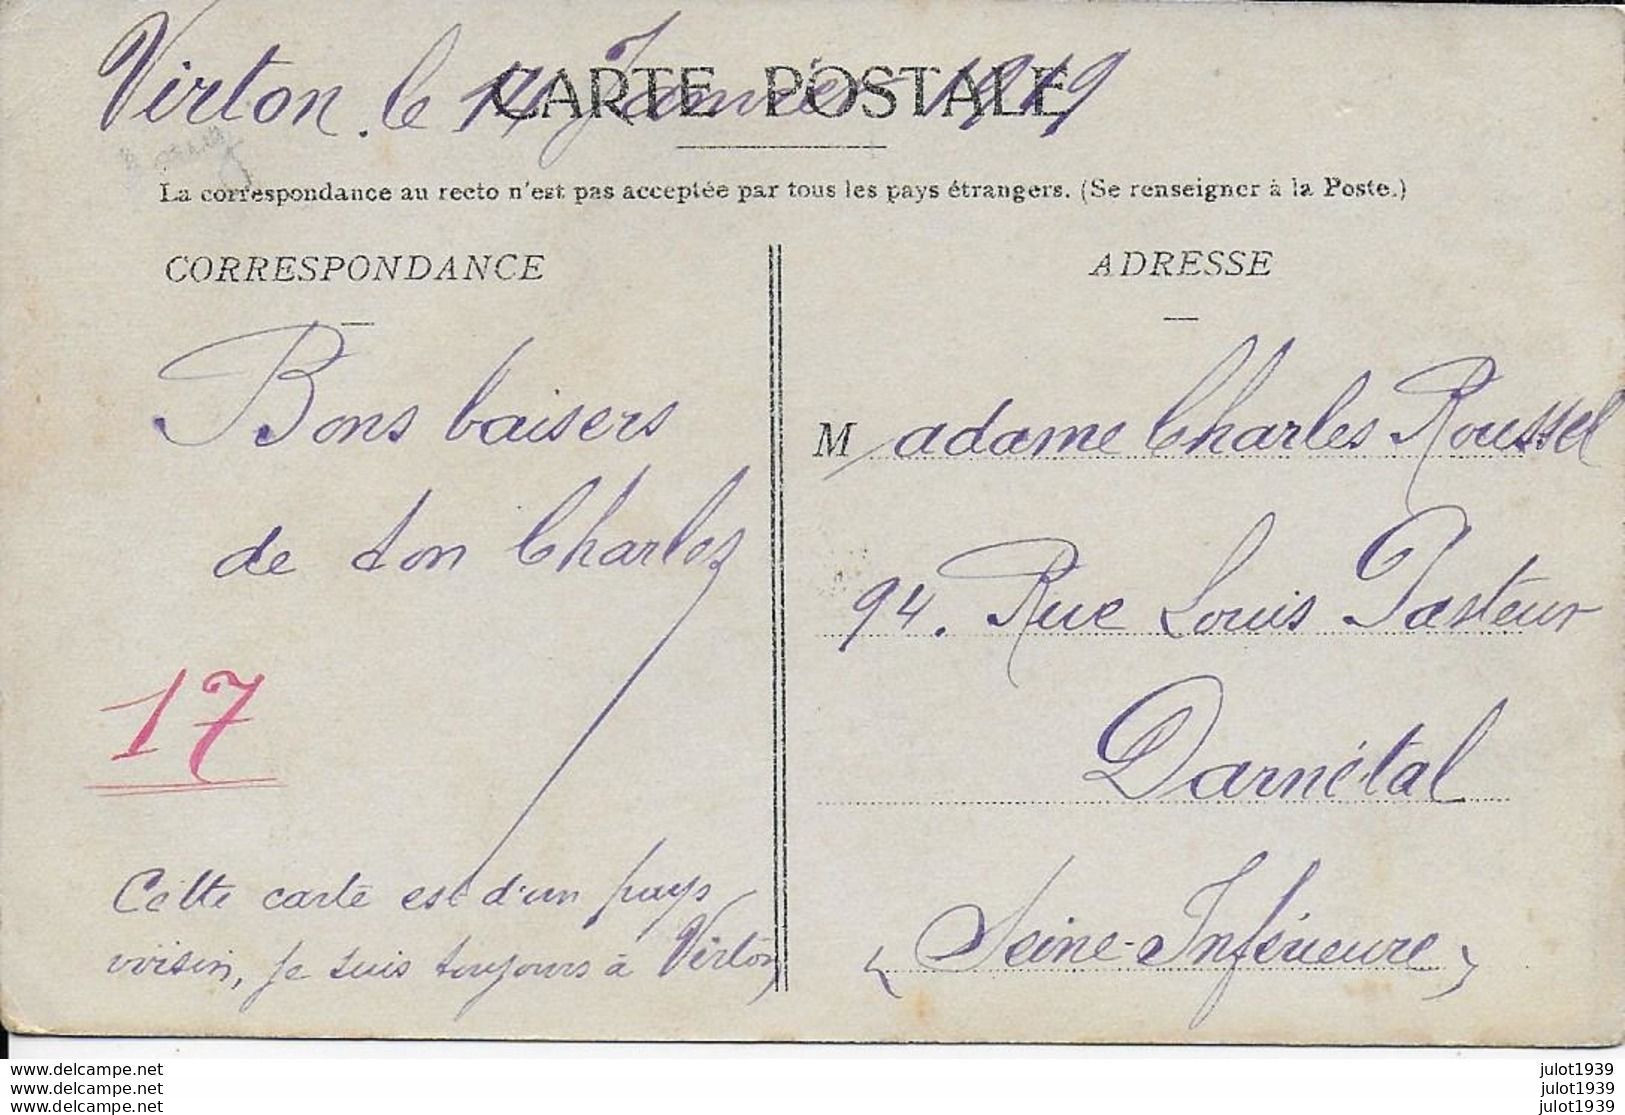 Virton, le 14 Janvier 1919
CARTE POSTALE
La correspondance au recto n'est pas acceptée par tous les pays étrangers. (Se renseigner à la Poste.)
CORRESPONDANCE
Bons baisers
de ton Charles
17
Cette carte est d'un pays
voisin, je suis toujours à Virton
ADRESSE
Madame Charles Roussel
94. Rue Louis Pasteur
Darnétal
(Seine-Inférieure)
www.delcampe.net
www.delcampe.net
www.delcampe.net
julot1939
julot1939
julot1939